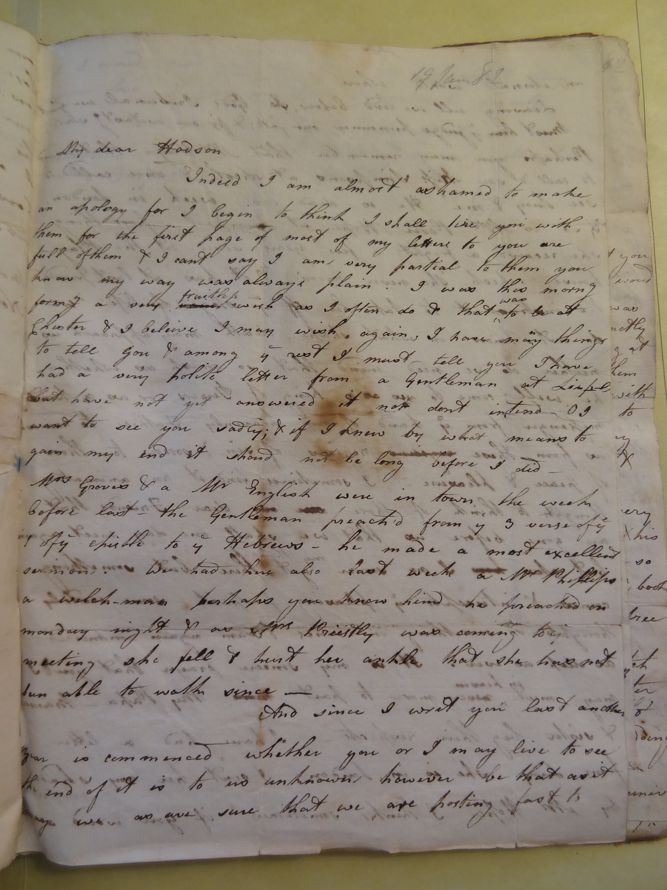 19 Jan 82
My dear Hodson
Indeed I am almost ashamed to make
an apology for I begin to think I shall tire you with
them for the first page of most of my letters to you are
full of them & I cant say I am very partial to them you
know my way was always plain. I was this morng
forming a very fruitless wish as I often do & that was to be at
Chester & I believe I may wish again, I have many things
to tell you & among ye rest I must tell you I have
had a very polite letter from a Gentleman at Liverpl,
but have not yet answered it nor dont intend – O I
want to see you sadly; & if I knew by what means to
gain my end it should not be long before I did –
Mrs Groves & a Mr English were in town the week
before last – the Gentleman preach'd from ye 3 verse of ye
of ye epistle to ye Hebrews – he made a most excellent
sermon. We had here also last week a Mr Phillips
a welch-man perhaps you know him he preached on
monday night & as Mrs Priestly was coming to ye
meeting she fell & hurt her ankle that she has not
been able to walk since –
And since I writ you last another
year is commenced whether you or I may live to see
the end of it is to us unknown however be that as it
may we are sure that we are posting fast to